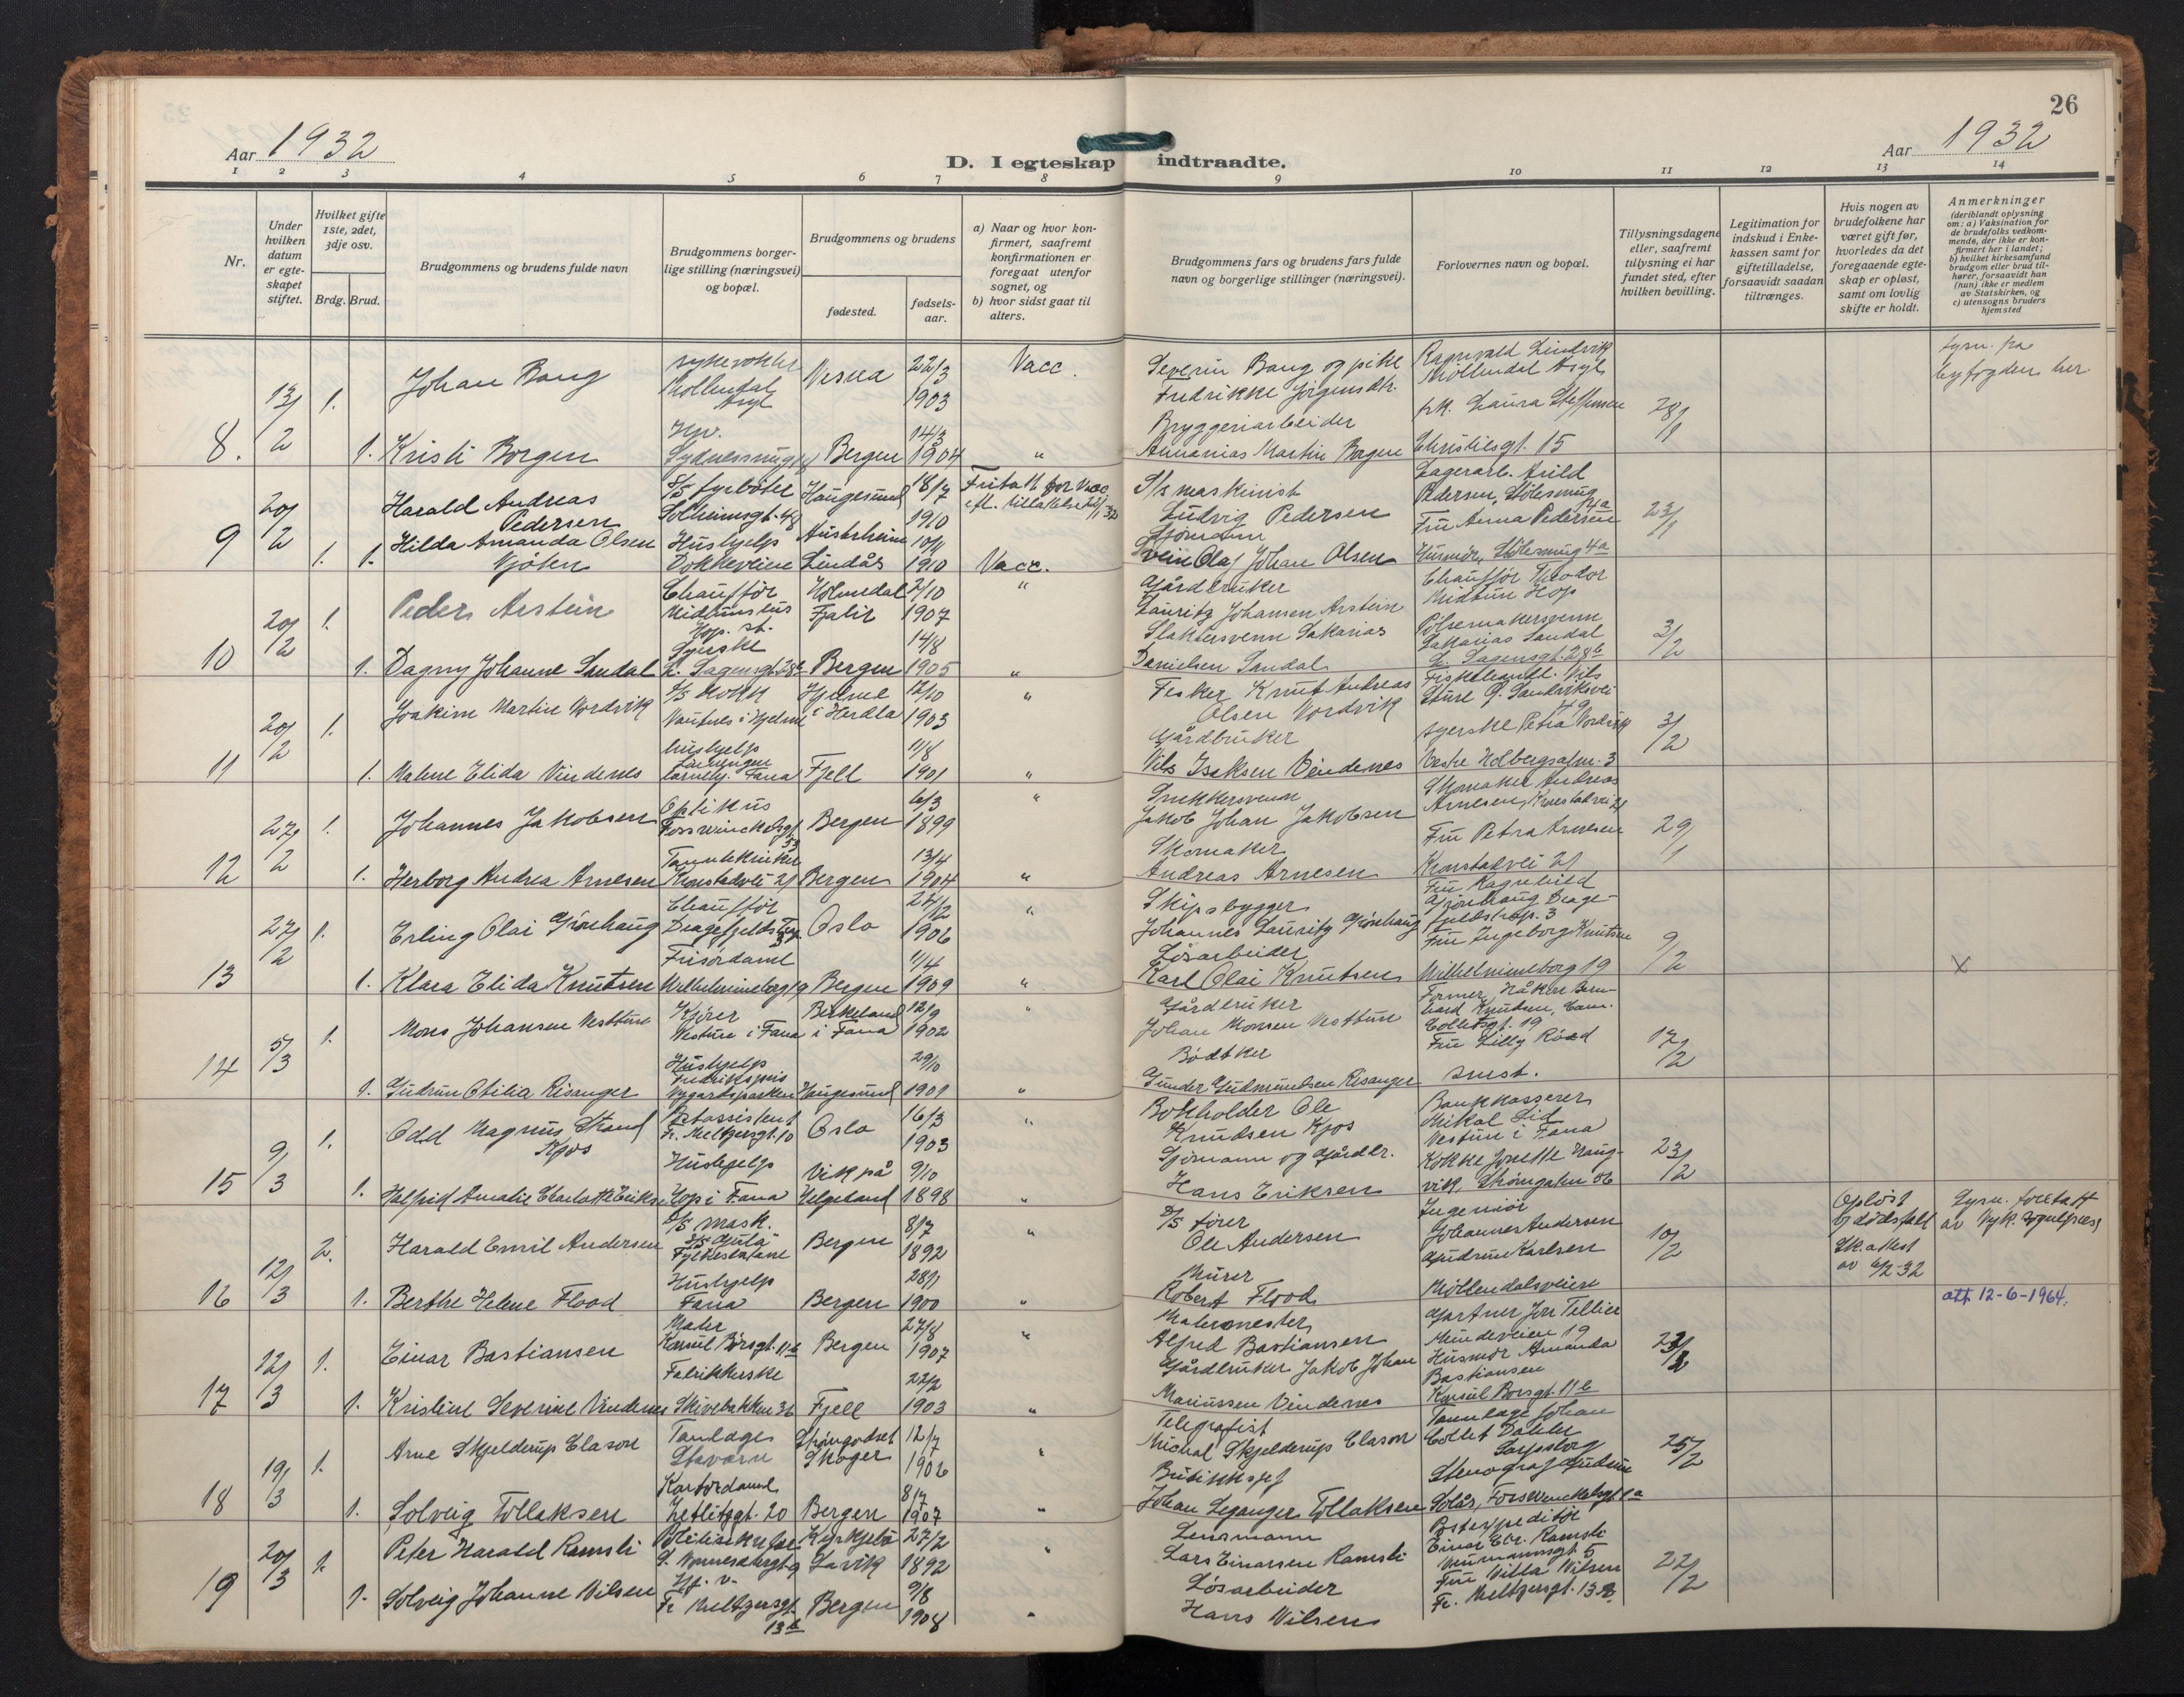 26
Aar 1932
D. I egteskap indtraadte.
Aar 1932
1 2 3 4 5 6 7 8 9 10 11 12 13 14
Nr.
Under hvilken datum er egteskapet stiftet.
Hvilket gifte 1ste, 2det, 3dje osv.
Brdg. Brud.
Brudgommens og brudens fulde navn
Brudgommens borgerlige stilling (næringsvei) og bopæl.
Brudgommens og brudens
fødested.
fødselsaar.
a) Naar og hvor konfirmert, saafremt konfirmationen er foregaat utenfor sognet, og
b) hvor sidst gaat til alters.
Brudgommens fars og brudens fars fulde navn og borgerlige stillinger (næringsvei).
Forlovernes navn og bopæl.
Tillysningsdagene eller, saafremt tillysning ei har fundet sted, efter hvilken bevilling.
Legitimation for indskud i Enkekassen samt for giftetilladelse, forsaavidt saadan tiltrænges.
Hvis nogen av brudefolkene har været gift før, hvorledes da det foregaaende egteskap er opløst, samt om lovlig skifte er holdt.
Anmerkninger
(deriblandt oplysning om: a) Vaksination for de brudefolks vedkommende, der ikke er konfirmert her i landet; b) hvilket kirkesamfund brudgom eller brud tilhører, forsaavidt han (hun) ikke er medlem av Statskirken, og c) utensogns bruders hjemsted
8. 13/2 1. Johan Bang Møllendal Asyl 22/3 1903 Vacc. Severin Bang og pike Fredrikke Jørgensdtr. Ragnvald Lindvik Møllendal Asyl 28/1 Lysn. fra byfogden her
1. Kristi Borgen Bergen 14/3 1904 " Bryggeriarbeider Ananias Martin Borgen frk. Laura Steffensen Christiesgt. 15
9 20/2 1. Harald Andreas Pedersen S/s fyrbøter Solheimsgt. 48 Haugesund 18/7 1910 Fritatt for Vacc. S/s maskinist Ludvig Pedersen Lagerarb. Arild Pedersen, Stølesmug 4a 23/1
1. Hilda Amanda Olsen Hushjelp Dokkeveien Austrheim Lindås 10/11 1910 Vacc. Sjømann Svein Olaf Johan Olsen Fru Anna Pedersen Husmor, Stølesmug 4a
10 20/2 1. Peder Arstein Chauffør Midttun Hop. st. Holmedal Fjaler 2/10 1907 " Gårdbruker Lauritz Johansen Arstein Chauffør Theodor Midttun Hop 3/2
1. Dagny Johanne Sandal Syerske L. Sagensgt. 28b Bergen 14/8 1905 " Slaktersvenn Sakarias Danielsen Sandal Pølsemakersvenn Sakarias Sandal L. Sagensgt. 28b
11 20/2 1. Joakim Martin Nordvik S/s kokk Hjelme i Herdla 12/10 1903 " Fisker Knut Andreas Olsen Nordvik Fiskehandl. Nils Sture Sandviksvei 49 3/2
1. Malene Elida Vindenes hushjelp Fana Fjell 11/8 1901 " Gårdbruker Nils Isaksen Vindenes syerske Petra Nordvik Vestre Holbergsalm. 3
12 27/2 1. Johannes Jakobsen Optikus Fosswinckelsgt. Bergen 6/3 1899 " Snekkersvenn Jakob Johan Jakobsen Skomaker Andreas Arnesen, Kronstadvei 21 29/1
1. Herborg Andrea Arnesen Tanntekniker Kronstadvei 21 Bergen 13/4 1904 " Skomaker Andreas Arnesen Fru Petra Arnesen Kronstadvei 21
13 27/2 1. Erling Olai Grønhaug Chauffør Dragefjeldstrp. 3 Oslo 24/12 1906 " Skipsbygger Johannes Lauritz Grønhaug Fru Ragnhild Grønhaug Dragefjeldstrap. 3 9/2
1. Klara Elida Knutsen Frisørdame Wilhelmineborg 19 Bergen 11/4 1909 " Løsarbeider Karl Olai Knutsen Fru Ingeborg Knutsen Wilhelmineborg 19 X
14 5/3 1. Mons Johansen Vesttun Kjører Vestun i Fana Birkeland i Fana 12/9 1902 " Gårdbruker Johan Monsen Vesttun Former Håkon Bernhard Knutsen, Cam. Colletsgt. 19 17/2
1. Gudrun Otilia Risanger Hushjelp Nygårdsparken Haugesund 29/10 1901 " Bødtker Gunder Gudmundsen Risanger Fru Lilly Råed smst.
15 9/3 1. Odd Magnus Strand Kjos Fr. Meltzersgt. 10 Oslo 16/3 1903 " Bokholder Ole Knudsen Kjos Bankkasserer Mikal Lid Vestun i Fana 23/2
1. Halfrid Amalie Charlotte Eriksen Hushjelp Hop i Fana Vik på Helgeland 9/10 1898 " Sjømann og Gårdbr. Hans Eriksen Kokke Jonette Haugvik, Strømgaten 56
16 12/3 2. Harald Emil Andersen S/s mask. S/s "Gula" Fylkesbåtane Bergen 8/7 1892 " S/s fører Ole Andersen Ingeniør Johannes Andersen 10/2 Opløst v/ dødsfall Sk.attest av 6/2-32 Lysn. foretatt av Nyk. sognepres
1. Berthe Helene Flood Hushjelp Fana Bergen 28/1 1900 " Murer Robert Flood Gudrun Karlsen Møllendalsveien att. 12-6-1964.
17 12/3 1. Einar Bastiansen Maler Konsul Børsgt. 11b Bergen 27/8 1907 " Malermester Alfred Bastiansen Gartner Jon Tellier Mindeveien 19
1. Kristine Severine Vindenes Fabrikkerske Skivebakken 36 Fjell 22/2 1903 " Gårdbruker Jakob Johan Mariussen Vindenes Husmor Amanda Bastiansen Konsul Børsgt. 11b
18 19/3 1. Arne Skjelderup Clason Tanlæge Stavern Strømgodset Skoger 12/7 1906 " Telegrafist Michal Skjelderup Clason Tannlæge Johan Collet Sarpsborg 25/2
1. Solveig Tollaksen Kontordame Zetlitzgt. 20 Bergen 8/7 1907 " Butikksjef Johan Leganger Tollaksen Stenograf Gudrun Solås, Fosswinckelsgt.
19 20/3 1. Peter Harald Ramsli Lavik 27/2 1892 " Lensmann Lars Einarsen Ramsli Postexpeditør Einar Chr. Ramsli Neumannsgt. 5 22/2
1. Solveig Johanne Nilsen Fr. Meltzersgt. 13b Bergen 9/8 1908 " Løsarbeider Hans Nilsen Fru Milla Nilsen Fr. Meltzersgt. 13b